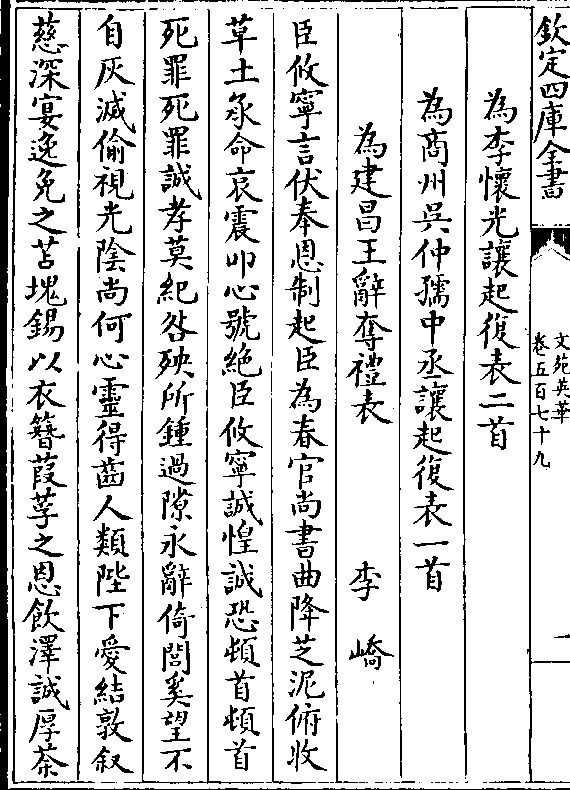 欽定四庫全書
文苑英華
卷五百七十九
一
為李懷光讓起復表二首
為商州吳仲孺中丞讓起復表一首
為建昌王辭奪禮表 李嶠
臣攸寧言伏奉恩制起臣為春官尚書曲降芝泥俯收
草土承命哀震叩心號絕臣攸寧誠惶誠恐頓首頓首
死罪死罪誠孝莫紀咎殃所鍾過隙永辭倚閭奚望不
自灰滅偷視光陰尚何心靈得齒人類陛下愛結敦叙
慈深宴逸免之苫塊錫以衣簪葭莩之恩飲澤誠厚荼